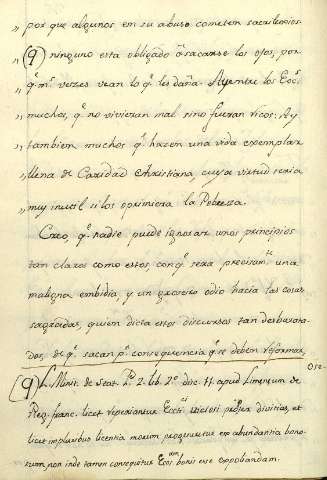 „ por que algunos en su abuso cometen sacrilegios.
„ (9) ninguno esta obligado â sacarse los ojos, por
„ q.e m.s vezes vean lo q.e les daña. Ay entre los Ecc.s
„ muchos, q.e no vivieran mal sino fueran ricos: Ay
„ tambien muchos q.e hazen una vida exemplar
„ llena de Caridad Christiana, cuya virtud seria
„ muy inutil si los oprimiera la Pobressa.
Creo, q.e nadie puede ignorar unos principios
tan claros como estos, conq.e sera precisam.te una
maligna embidia, y un grosero odio hacia las cosas
sagradas, quien dicta estos discursos tan desbarata-
dos, de q.e sacan p.r consequencia q.e se deben reformar,
(9) L. Minit. de Stat. P. 2. lib. 2.o disc. 11. apud Limen
Reg. franc. licet reperiantur Ecc.ci vitiosi propter divitias, et
licet in pluribus licentia morum progeneretur ex abundantia bono-
rum, non inde tamen consequitur bonis esse expoliandam.